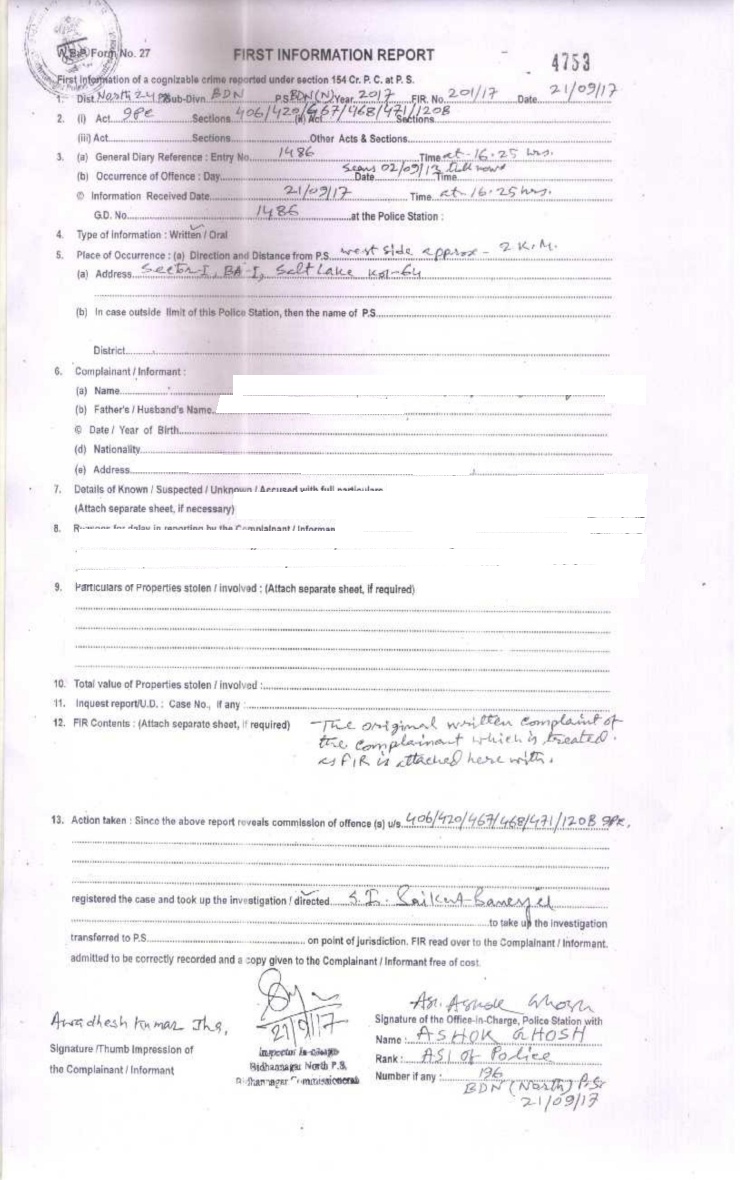 W.B.P. Form No. 27
FIRST INFORMATION REPORT
4753
First Information of a cognizable crime reported under section 154 Cr. P. C. at P. S.
1. Dist. North 24 Sub-Divn. BDN P.S. BDN(N) Year 2017 FIR. No. 201/17 Date 21/09/17
2. (i) Act IPC Sections 406/420/467/468/471/120B (ii) Act Sections
(iii) Act Sections Other Acts & Sections
3. (a) General Diary Reference : Entry No. 1486 Time at - 16.25 hrs.
(b) Occurrence of Offence : Day Date 02/09/13 Time
© Information Received Date 21/09/17 Time at - 16.25 hrs.
G.D. No. 1486 at the Police Station :
4. Type of information : Written / Oral
5. Place of Occurrence : (a) Direction and Distance from P.S. west side approx - 2 K.M.
(a) Address Sector-I, BA-I, Salt Lake Kol-64
(b) In case outside limit of this Police Station, then the name of P.S.
District
6. Complainant / Informant :
(a) Name
(b) Father's / Husband's Name
© Date / Year of Birth
(d) Nationality
(e) Address
7. Details of Known / Suspected / Unknown / Accused with full particulars
(Attach separate sheet, if necessary)
8. Reasons for delay in reporting by the Complainant / Informan
9. Particulars of Properties stolen / involved : (Attach separate sheet, if required)
10. Total value of Properties stolen / involved :
11. Inquest report/U.D. : Case No., if any :
12. FIR Contents : (Attach separate sheet, if required) The original written complaint of
the complainant which is treated
as FIR is attached here with.
13. Action taken : Since the above report reveals commission of offence (s) u/s. 406/420/467/468/471/120B IPC.
registered the case and took up the investigation / directed S.I. Saikat Banerjee
to take up the investigation
transferred to P.S. on point of jurisdiction. FIR read over to the Complainant / Informant.
admitted to be correctly recorded and a copy given to the Complainant / Informant free of cost.
Awadhesh Kumar Jha,
Signature /Thumb Impression of
the Complainant / Informant
21/9/17
Inspector In-charge
Bidhannagar North P.S.
Bidhannagar Commissionerate
ASI. Ashok Ghosh
Signature of the Office-in-Charge, Police Station with
Name : ASHOK GHOSH
Rank : ASI of Police
Number if any : 196
BDN (North) P.S.
21/09/17